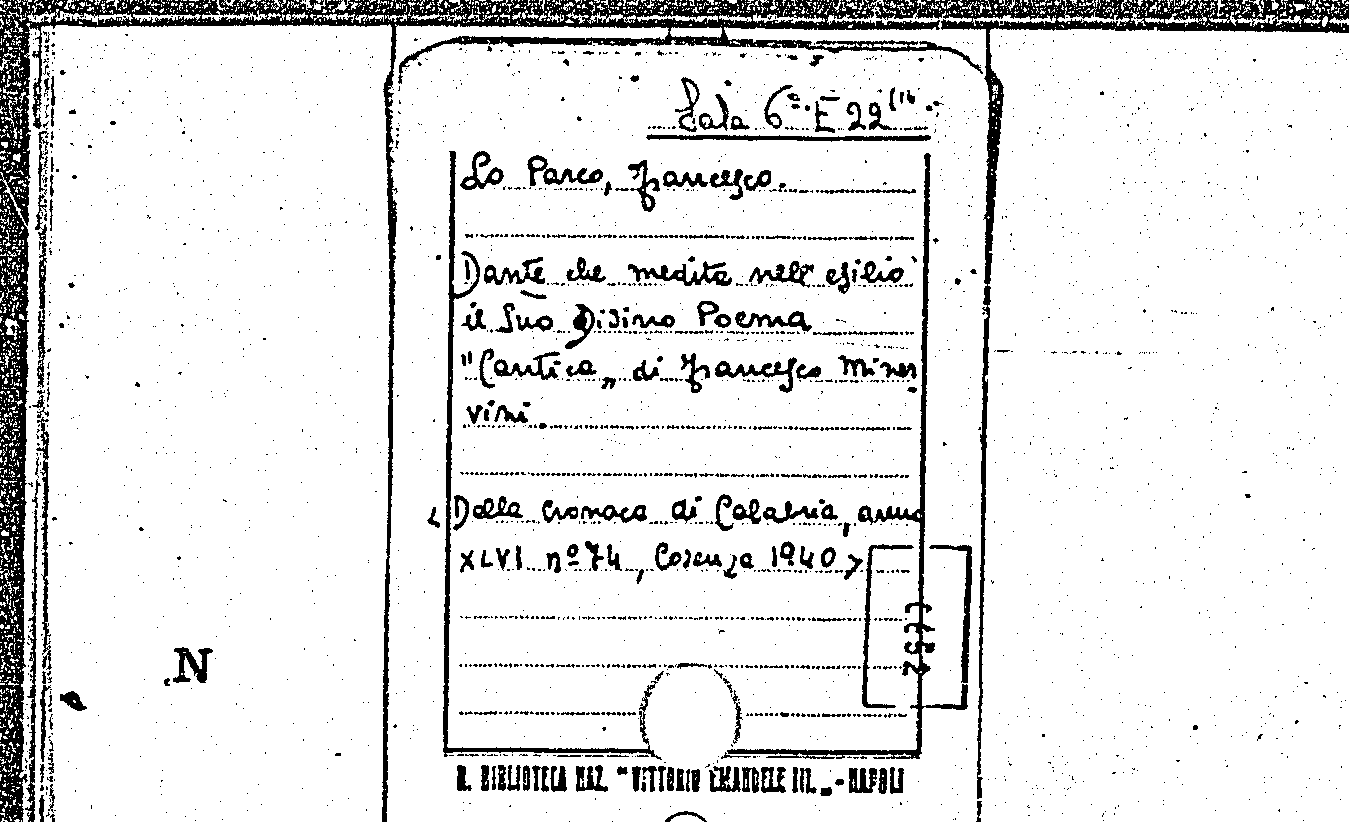 Sala 6ª. E 22 (16.
Lo Parco, Francesco.
Dante che medita nell'esilio
il Suo Divino Poema
"Cantica„ di Francesco Miner
vini.
<Dalla Cronaca di Calabria, anno
XLVI nº 74, Cosenza 1940>
N
R. BIBLIOTECA NAZ. "VITTORIO EMANUELE III„ - NAPOLI